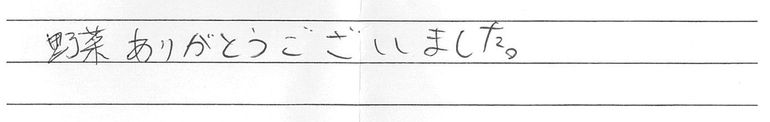 野菜ありがとうございました。